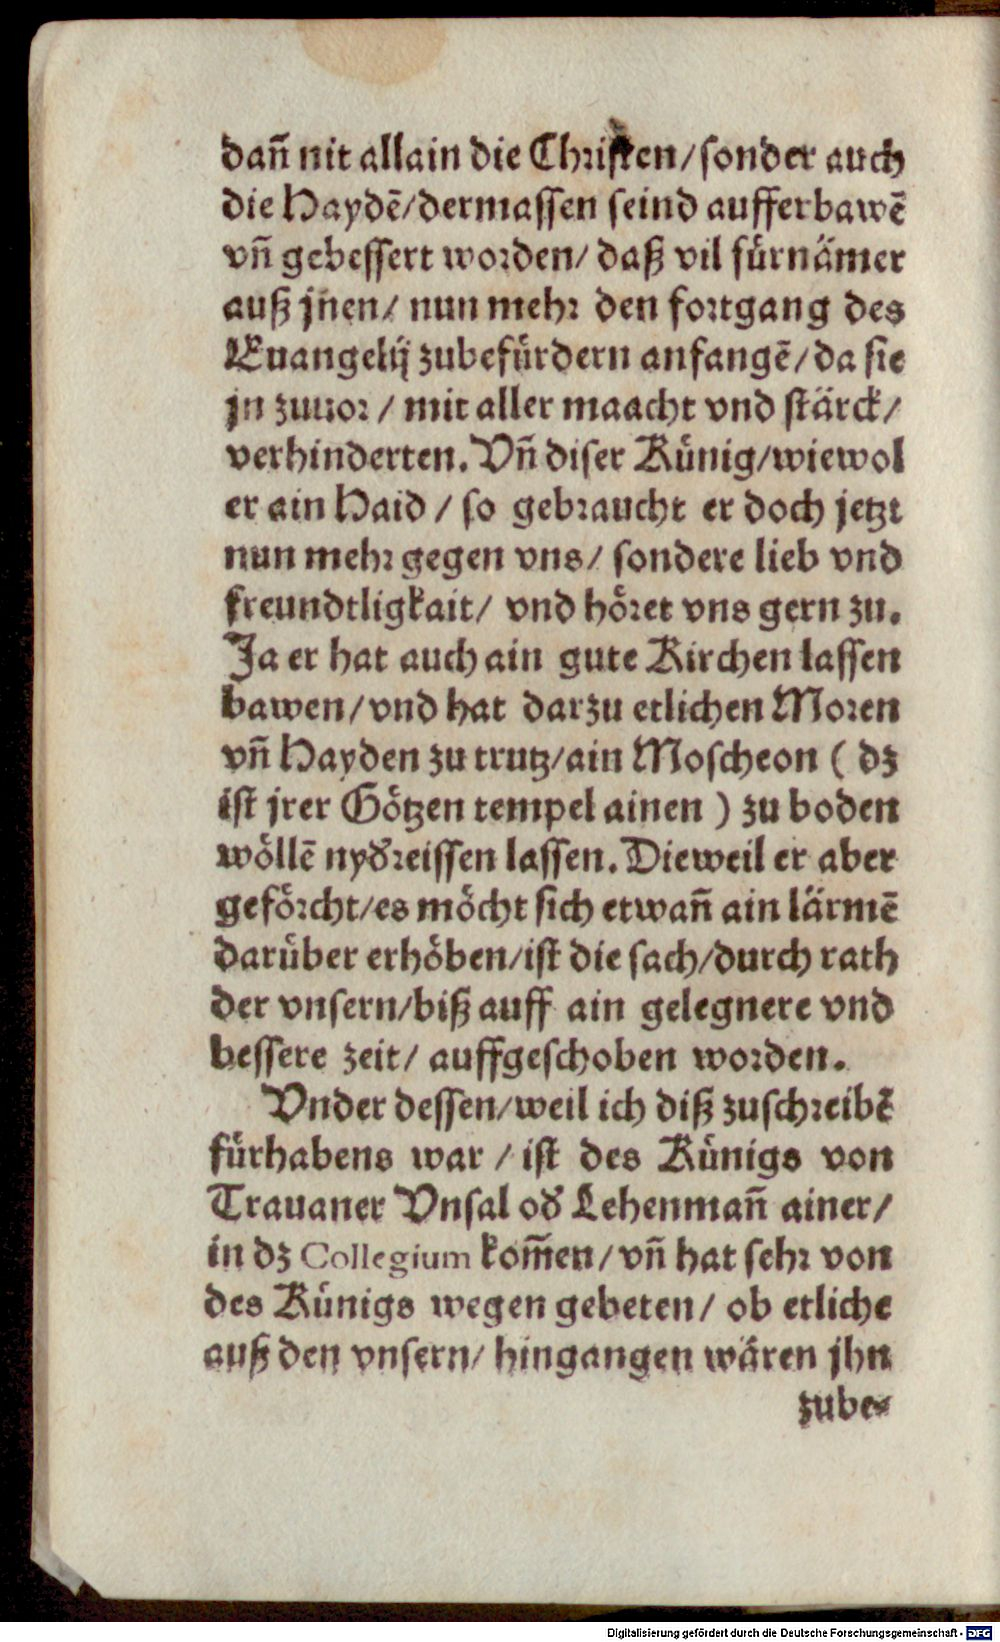 dañ nit allain die Christen/sonder auch
die Haydē/dermassen seind aufferbawē
vñ gebessert worden/ daß vil fürnämer
auß jnen/ nun mehr den fortgang des
Euangelij zubefürdern anfangē/da sie
jn zuuor / mit aller maacht vnd stärck/
verhinderten. Vñ diser Künig/wiewol
er ain Haid / so gebraucht er doch jetzt
nun mehr gegen vns/ sondere lieb vnd
freundtligkait/ vnd höret vns gern zu.
Ja er hat auch ain gute Kirchen lassen
bawen/vnd hat darzu etlichen Moren
vñ Hayden zu trutz/ain Moscheon ( dz
ist jrer Götzen tempel ainen ) zu boden
wöllē nyd'reissen lassen. Dieweil er aber
geförcht/es möcht sich etwañ ain lärmē
darüber erhöben/ist die sach/durch rath
der vnsern/biß auff ain gelegnere vnd
bessere zeit/ auffgeschoben worden.
Vnder dessen/weil ich diß zuschreibē
fürhabens war / ist des Künigs von
Trauaner Vnsal od' Lehenmañ ainer/
in dz Collegium kom̄en/vñ hat sehr von
des Künigs wegen gebeten/ ob etliche
auß den vnsern/ hingangen wären jhn
zube-
Digitalisierung gefördert durch die Deutsche Forschungsgemeinschaft - DFG